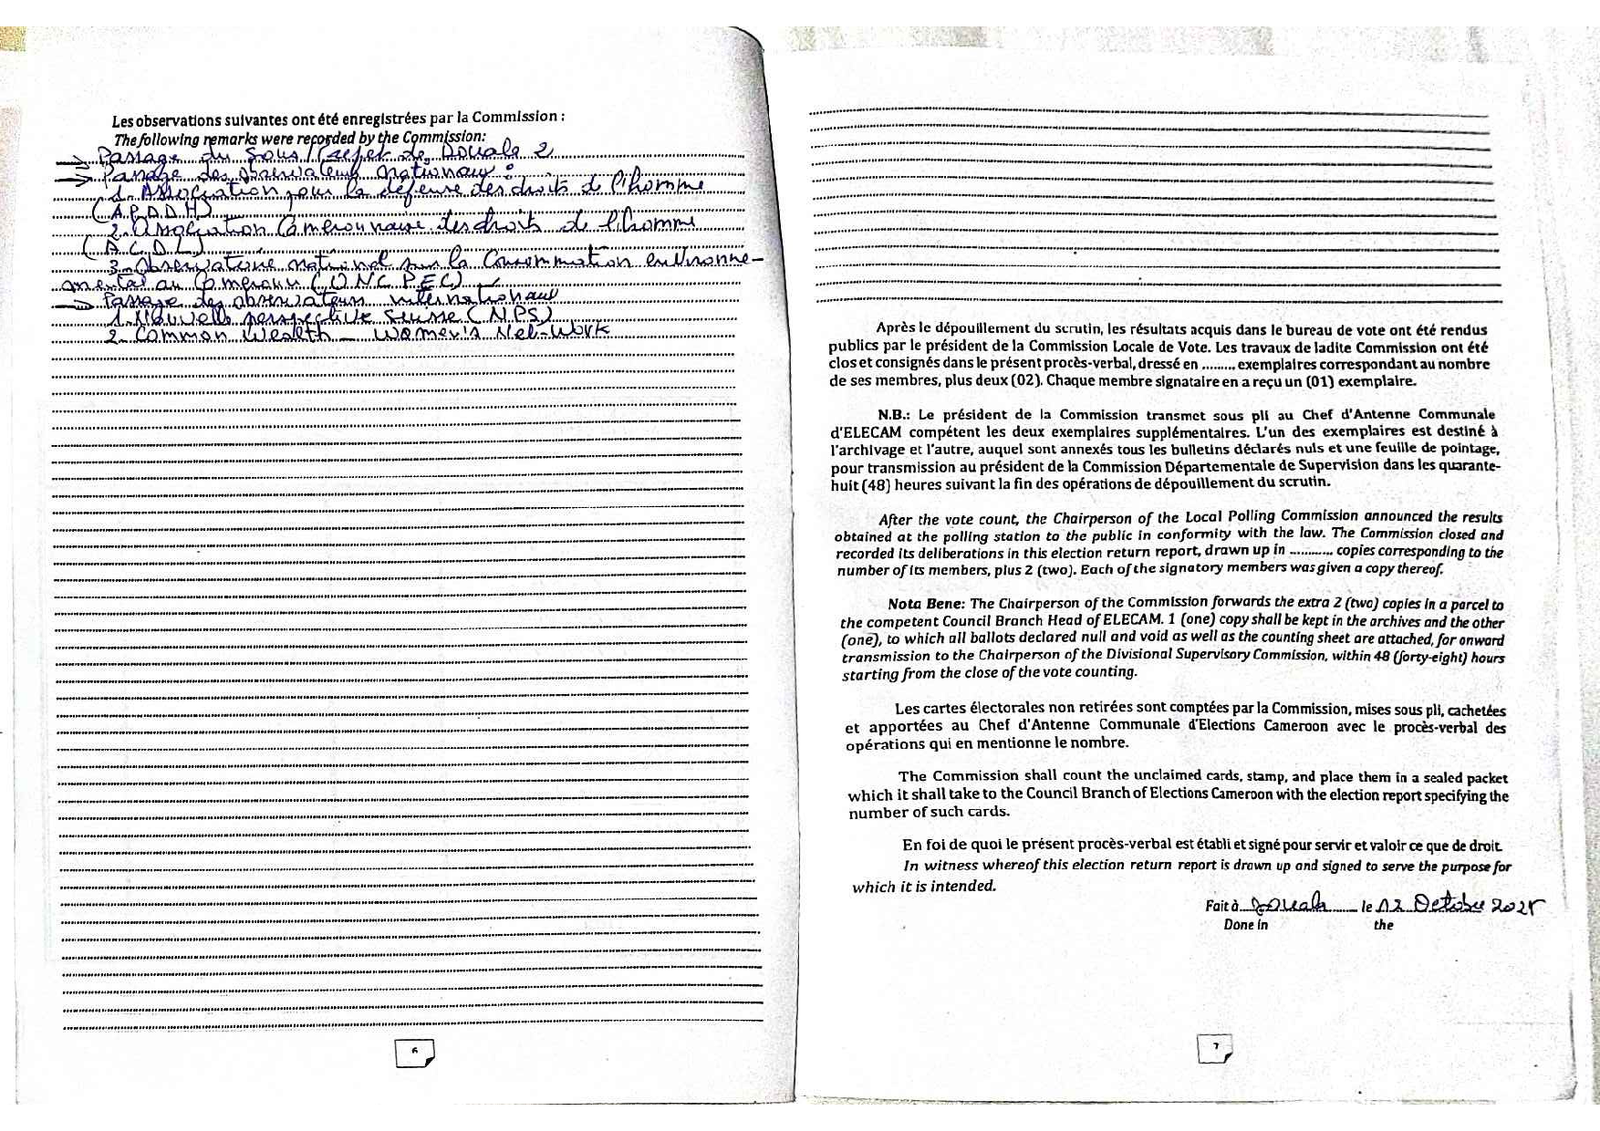 Les observations suivantes ont été enregistrées par la Commission :
The following remarks were recorded by the Commission:
→ Passage du Sous/Prefet de Douala 2
→ Passage des observateurs nationaux :
1. Association pour la défense des droits de l'homme
(A.P.D.D.H)
2. Association Camerounaise des droits de l'homme
(A.C.D.L)
3. Observatoire national sur la Consommation environne-
mental au Cameroun (ONC PEC)
→ Passage des observateurs internationaux
1. Nouvelle perspective Suisse (NPS)
2. Common Wealth _ Women's Net-Work
6
Après le dépouillement du scrutin, les résultats acquis dans le bureau de vote ont été rendus
publics par le président de la Commission Locale de Vote. Les travaux de ladite Commission ont été
clos et consignés dans le présent procès-verbal, dressé en ......... exemplaires correspondant au nombre
de ses membres, plus deux (02). Chaque membre signataire en a reçu un (01) exemplaire.
N.B.: Le président de la Commission transmet sous pli au Chef d'Antenne Communale
d'ELECAM compétent les deux exemplaires supplémentaires. L'un des exemplaires est destiné à
l'archivage et l'autre, auquel sont annexés tous les bulletins déclarés nuls et une feuille de pointage,
pour transmission au président de la Commission Départementale de Supervision dans les quarante-
huit (48) heures suivant la fin des opérations de dépouillement du scrutin.
After the vote count, the Chairperson of the Local Polling Commission announced the results
obtained at the polling station to the public in conformity with the law. The Commission closed and
recorded its deliberations in this election return report, drawn up in ........... copies corresponding to the
number of its members, plus 2 (two). Each of the signatory members was given a copy thereof.
Nota Bene: The Chairperson of the Commission forwards the extra 2 (two) copies in a parcel to
the competent Council Branch Head of ELECAM. 1 (one) copy shall be kept in the archives and the other
(one), to which all ballots declared null and void as well as the counting sheet are attached, for onward
transmission to the Chairperson of the Divisional Supervisory Commission, within 48 (forty-eight) hours
starting from the close of the vote counting.
Les cartes électorales non retirées sont comptées par la Commission, mises sous pli, cachetées
et apportées au Chef d'Antenne Communale d'Elections Cameroon avec le procès-verbal des
opérations qui en mentionne le nombre.
The Commission shall count the unclaimed cards, stamp, and place them in a sealed packet
which it shall take to the Council Branch of Elections Cameroon with the election report specifying the
number of such cards.
En foi de quoi le présent procès-verbal est établi et signé pour servir et valoir ce que de droit.
In witness whereof this election return report is drawn up and signed to serve the purpose for
which it is intended.
Fait à Douala le 12 Octobre 2025
Done in the
7